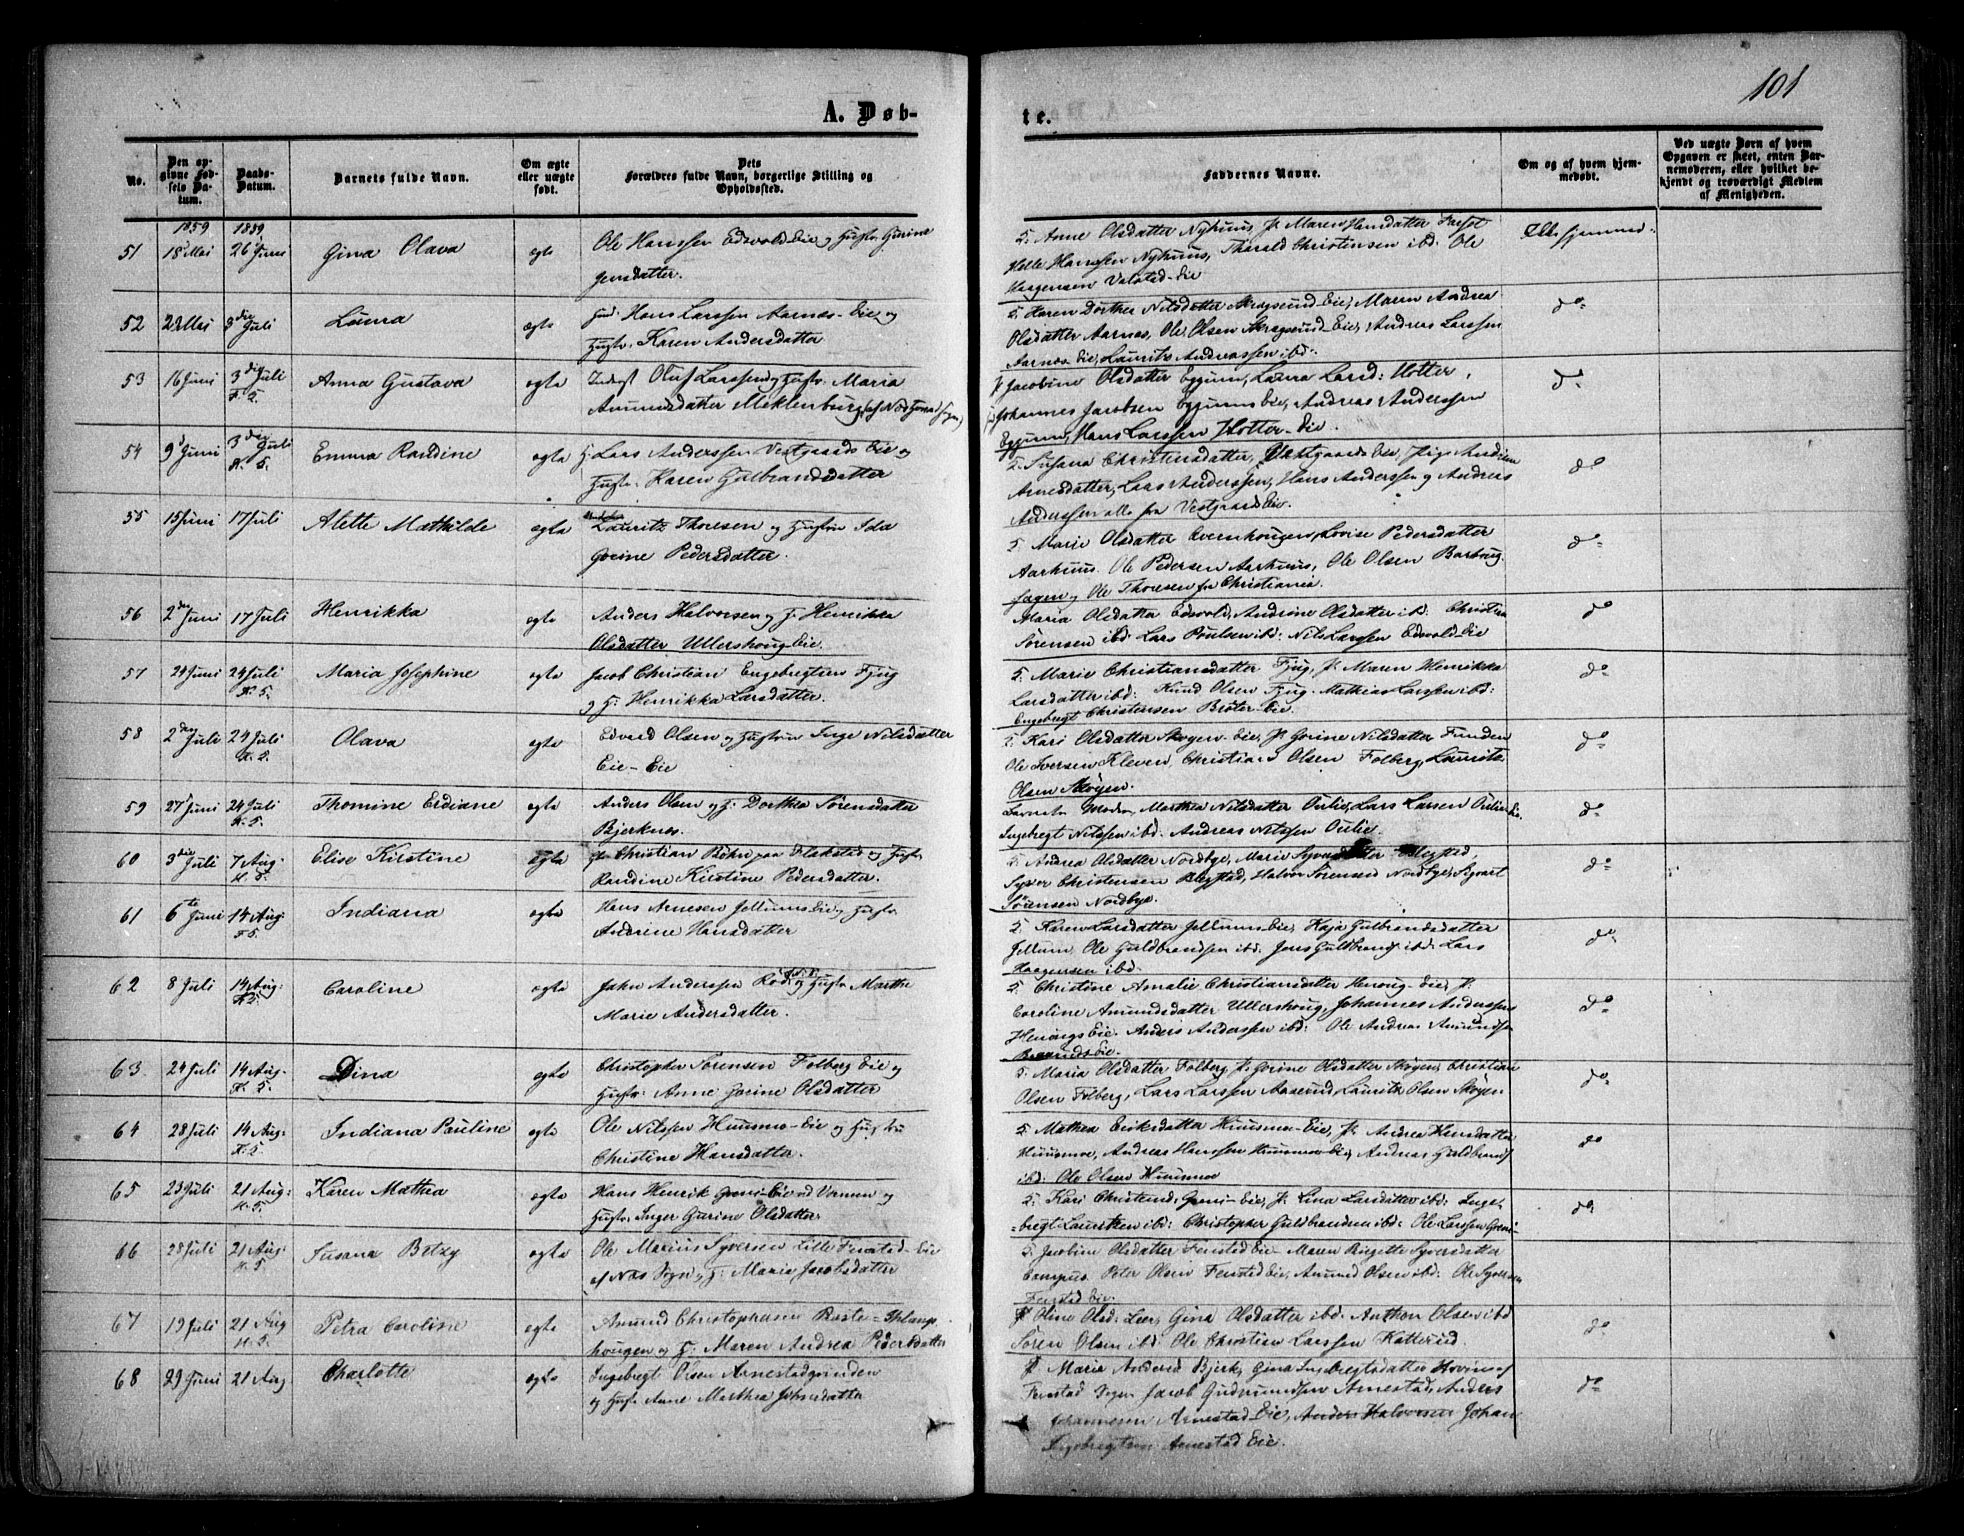 101
A. Døb-
te.
No.
Den opgivne Fødsels Datum.
Daabs-Datum.
Barnets fulde Navn.
Om ægte eller uægte født.
Dets Forældres fulde Navn, borgerlige Stilling og Opholdssted.
Faddernes Navne.
Om og af hvem hjemmedøbt.
Ved uægte Børn af hvem Opgaven er skeet, enten Barnemoderen, eller hvilket bekjendt og troværdigt Medlem af Menigheden.
1859 1859
51 18 Mai 26 Juni Gina Olava ægte Ole Hanssen Edsvold Eie og Hustr Gurine
Jensdatter.
Anne Olsdatter Nyhuus, J: Maren Hansdatter
Helle Hanssen Nyhuus, Tharald Christensen ibd: Ole
Haagensen Valstad-Eie
52 Mai 3die Juli Laura ægte Hans Larssen Aarnæs-Eie og
Hustr. Karen Andersdatter
Karen Dorthea Nilsdatter Eie, Maren Andrea
Olsdatter Aarnæs, Ole Olsen Eie, Andreas Larssen
Aarnæs Eie, Laurits Andreassen ibd:
do
53 16 Juni 3die Juli Anna Gustava ægte Inderst Oluf Larssen og Hustr Maria
Amundsdatter Meklenburg, af
J: Jacobine Olsdatter Eggum, Laura Larsd: Hotter,
Johannes Jacobsen Eggums Eie, Andreas Anderssen
Eggum, Hans Larssen Hotter-Eie.
do
54 9 Juni 3die Juli Emma Randine ægte Lars Anderssen Vestgaards Eie og
Hustr. Karen Gulbrandsdatter
Susana Christensdatter, Vestgaards Eie,
Arnesdatter, Lars Anderssen, Hans Anderssen og Andreas
Anderssen alle fra Vestgaards Eie.
do
55 15 Juni 17 Juli Alette Mathilde ægte Lauritz Thoresen og Hustru Ida
Gorine Pedersdatter.
Marie Olsdatter Lovise Pedersdatter
Aarhuus. Ole Pedersen Aarhuus, Ole Olsen
og Ole Thoresen fra Christiania.
do
56 2den Juni 17 Juli Henrikka ægte Anders Halvorsen og H: Henrikka
Olsdatter Ullershoug Eie.
Maria Olsdatter Edsvold, Andrine Olsdatter ibd: Christian
Sørensen ibd: Lars Poulsen ibd: Nils Larssen Edsvold-Eie
do
57 24 Juni 24 Juli Maria Josephine ægte Jacob Christian Engebregtsen Fjug
og H: Henrikka Larsdatter.
Marie Christiansdatter Fjug, J: Maren Henrikka
Larsdatter ibd: Knud Olsen Fjug. Mathias Larssen ibd:
Engebregt Christensen Brøter-Eie.
do
58 2den Juli 24 Juli Olava ægte Edvard Olsen og Hustru Inge Nilsdatter
Eie-Eie
Kari Olsdatter Skøyen-Eie, J: Gorine Nilsdatter Funden
Ole Iversen Kleven, Christian Olsen Folberg, Laurits
Olsen Skøyen.
do
59 27 Juni 24 Juli Thomine Erdiane ægte Anders Olsen og H: Dorthea Sørensdatter
Bjerknæs.
Barnets Moder, Marthea Nilsdatter Oulie, Lars Larsen Oulie Eie.
Ingebregt Nilssen ibd. Andreas Nilssen Oulie.
do
60 3die Juli 7 Aug. Elise Kirstine ægte Christian Bøhn paa Flakstad og Hustr
Randine Kirstine Pedersdatter.
Andrea Olsdatter Nordbye, Marie
Syver Christensen Blegstad, Halvor Sørensen Nordbye, Sigvart
Sørensen Nordbye.
do
61 6te Juni 14 Aug. Indiana ægte Hans Arnesen Jellums Eie og Hustr
Andrine Hansdatter
Karen Larsdatter Jellums Eie, Kaja Gulbrandsdatter
Jellum, Ole Guldbrandsen ibd: Jens Guldbrands ibd: Lars
Haagensen ibd.
do
62 8 Juli 14 Aug: Caroline ægte John Anderssen og Hustr Marthe
Marie Andersdatter.
Christine Amalie Christiansdatter Henoug-Eie, J:
Caroline Amundsdatter Ullershoug, Johannes Anderssen
Henougs Eie. Anders Anderssen ibd: Ole Andreas Amundsen
do
63. 24 Juli 14 Aug. Dina ægte Christopher Sørensen Folberg Eie og
Hustr: Anne Gorine Olsdatter
Maria Olsdatter Folberg, J: Gorine Olsdatter Skøyen, Christian
Olsen Folberg, Lars Larssen Aaserud, Laurits Olsen Skøyen
do
64 28 Juli 14 Aug: Indiana Pauline ægte Ole Nilssen Huusmo-Eie og Hustru
Christine Hansdatter.
Mathea Eriksdatter Huusmo-Eie, J: Andrea Hansdatter
Huusmoe, Andreas Hanssen Huusmo Eie, Andreas Guldbrands
ibd: Ole Olsen Huusmoe
do
65 23 Juli 21 Aug: Karen Mathea ægte Hans Henrik Greni-Eie ved Vormen og
Hustr. Inger Gurine Olsdatter
Kari Christensd, Greni-Eie, J: Lina Larsdatter ibd: Inge-
bregt Lauritzen ibd: Christopher Guldbrandsen ibd: Ole Larssen Greni-
do
66 28 Juli 21 Aug. Susana Betzy ægte Ole Marius Syversen Lille Fenstad-Eie
af Næs Sogn, H: Maria Jacobsdatter
Jacobine Olsdatter Fenstad Eie- Maren Birgitte Syversdatter
Campus. Peter Olsen Fenstad Eie, Amund Olsen ibd: Ole Syversen
Fenstad Eie.
67 19 Juli 21 Aug Petra Caroline ægte Amund Christophersen
hougen og H: Maren Andrea Pedersdatter
J: Oline Olsd: Leer, Gina Olsdatter ibd: Anthon Olsen ibd
Søren Olsen ibd: Ole Christian Larssen Katterud.
do
68 29 Juni 21 Aug Charlotte ægte Ingebregt Olsen Arnestadgrinden
og Hustr Anne Marthea Johnsdatter
J: Marie Andersd Bjerk, Gina Ingebregtsdatter Hovin af
Fenstad Sogn Jacob Gudmundsen Arnestad, Anders
Johannesen Arnestad Eie, Anders Halvorsen Johan
Ingebregtsen Arnestad Eie.
do